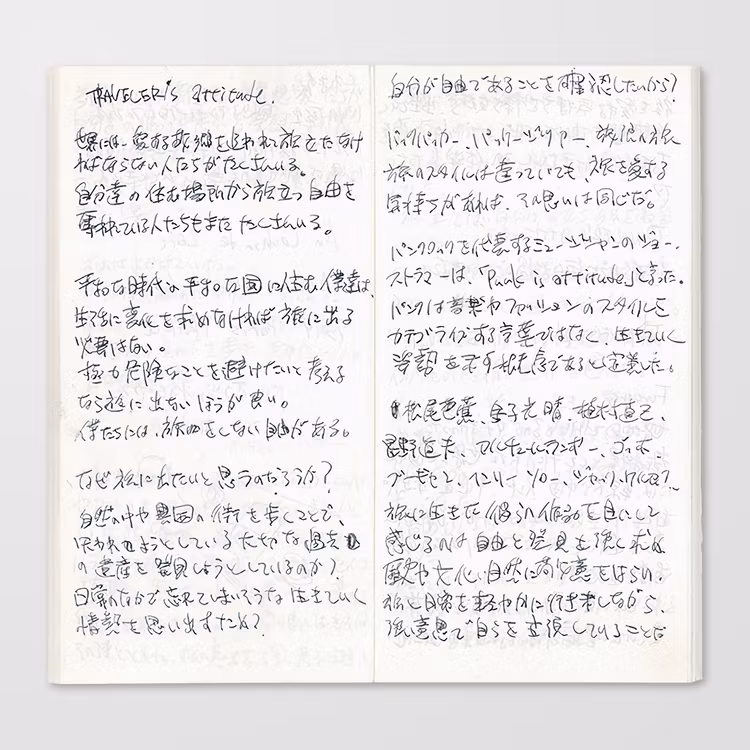 TRAVELER's attitude.
世界には、愛する故郷を追われて旅立たなけ
ればならない人たちがたくさんいる。
自分達の住む場所から旅立つ自由を
奪われている人たちもまたたくさんいる。
平和な時代の平和な国に住む僕達は、
生活に変化を求めなければ旅に出る
必要はない。
極力危険なことを避けたいと考える
なら旅に出ないほうが良い。
僕たちには、旅をしない自由がある。
なぜ旅に出たいと思うのだろうか?
自然の中や異国の街を歩くことで、
失われようとしている大切な過去
の遺産を発見しようとしているのか?
日常のなかで忘れてしまいそうな生きていく
情熱を思い出すため?
自分が自由であることを確認したいから?
バックパッカー、パッケージツアー、放浪の旅
旅のスタイルは違っていても、旅を愛する
気持ちがあれば、その思いは同じだ。
パンクロックを代表するミュージシャンのジョー・
ストラマーは、「Punk is attitude」と言った。
パンクは音楽やファッションのスタイルを
カテゴライズする言葉ではなく、生きていく
姿勢を示す概念であると定義した。
松尾芭蕉、金子光晴、植村直己、
星野道夫、アルチュール・ランボー、ゴッホ、
ゴーギャン、ヘンリー・ソロー、ジャック・ケルアック
旅に生きた彼らの作品を目にして
感じるのは自由と発見を強く求め
歴史や文化、自然に敬意をはらい、
旅と日常を軽やかに行き来しながら、
強い意思で自らを立脚していることだ